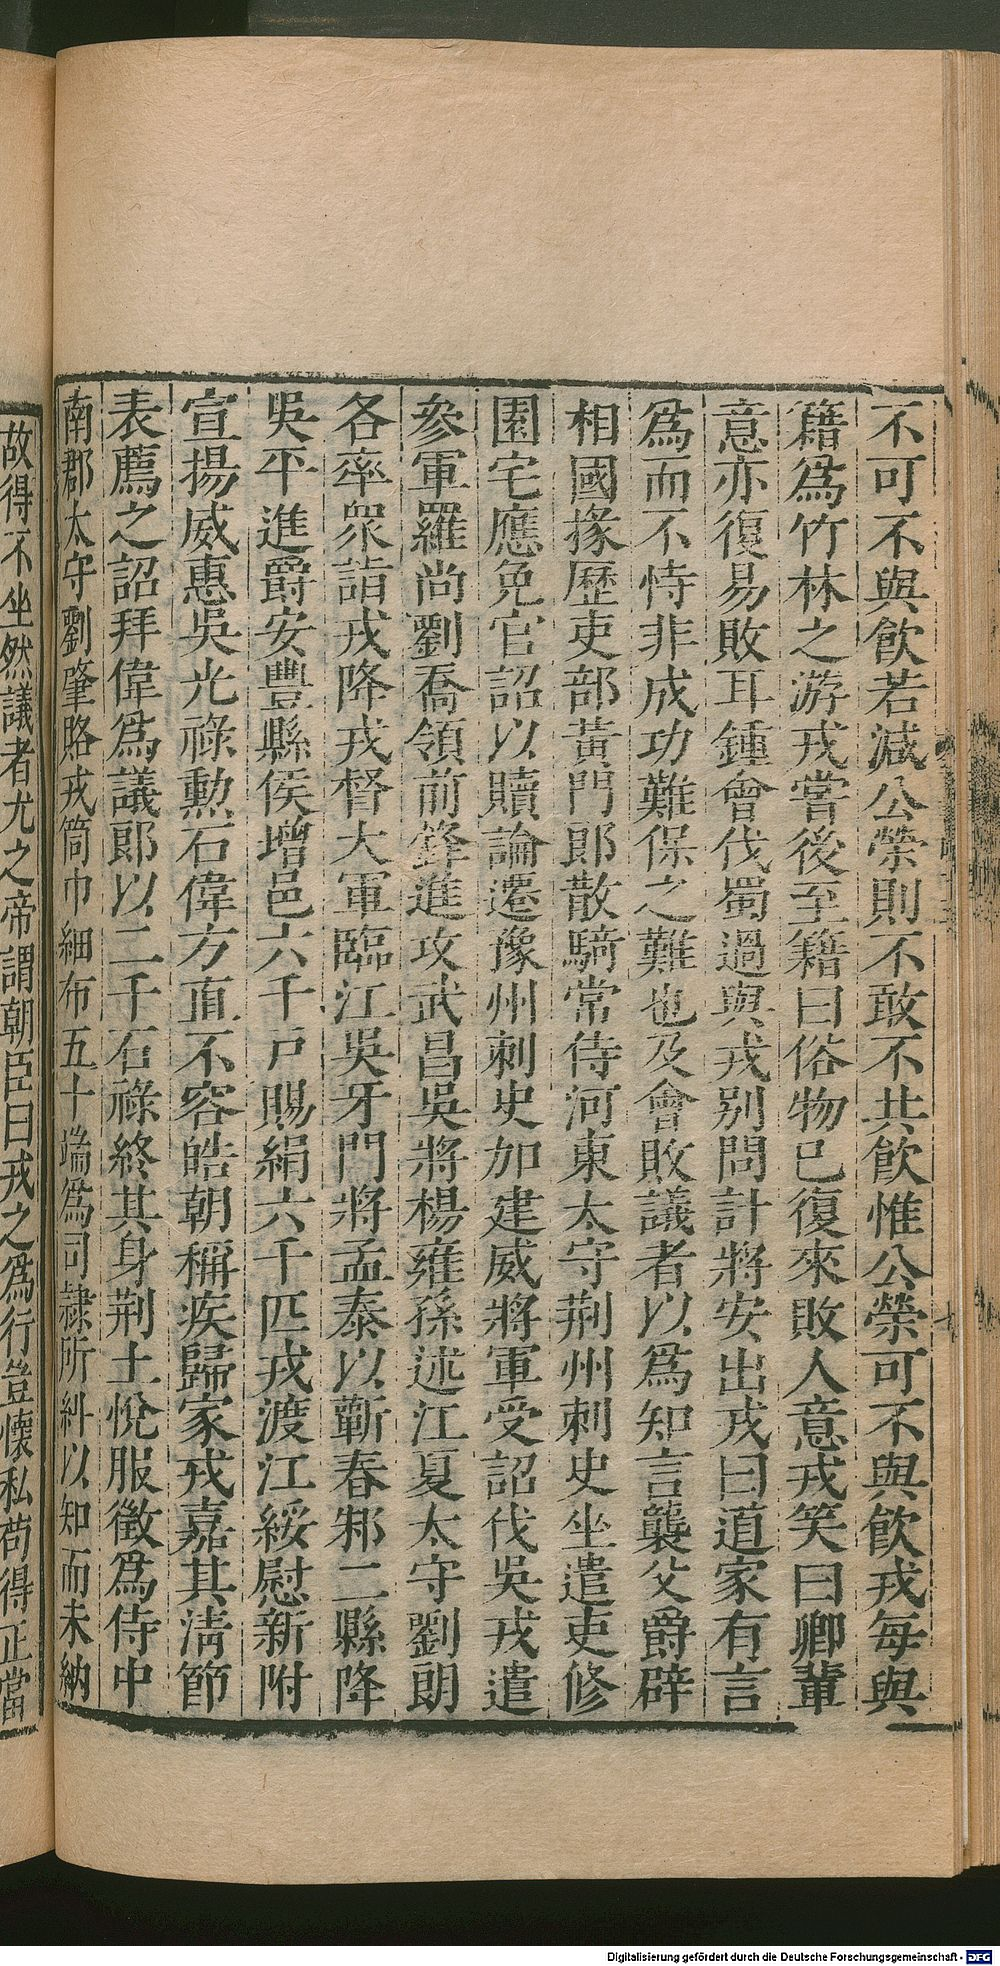 不可不與飲若減公榮則不敢不共飲惟公榮可不與飲戎每與
籍爲竹林之游戎嘗後至籍曰俗物已復來敗人意戎笑曰卿輩
意亦復易敗耳鍾會伐蜀過與戎別問計將安出戎曰道家有言
爲而不恃非成功難保之難也及會敗議者以爲知言襲父爵辟
相國掾歷吏部黃門郎散騎常侍河東太守荆州刺史坐遣吏修
園宅應免官詔以贖論遷豫州刺史加建威將軍受詔伐吳戎遣
參軍羅尚劉喬領前鋒進攻武昌吳將楊雍孫述江夏太守劉朗
各率衆詣戎降戎督大軍臨江吳牙門將孟泰以蘄春邾二縣降
吳平進爵安豐縣侯增邑六千戸賜絹六千匹戎渡江綏慰新附
宣揚威惠吳光祿勲石偉方直不容皓朝稱疾歸家戎嘉其清節
表薦之詔拜偉爲議郎以二千石祿終其身荆土悅服徵爲侍中
南郡太守劉肇賂戎筒巾細布五十端爲司隸所糾以知而未納
故得不坐然議者尤之帝謂朝臣曰戎之爲行豈懷私苟得正當
Digitalisierung gefördert durch die Deutsche Forschungsgemeinschaft - DFG